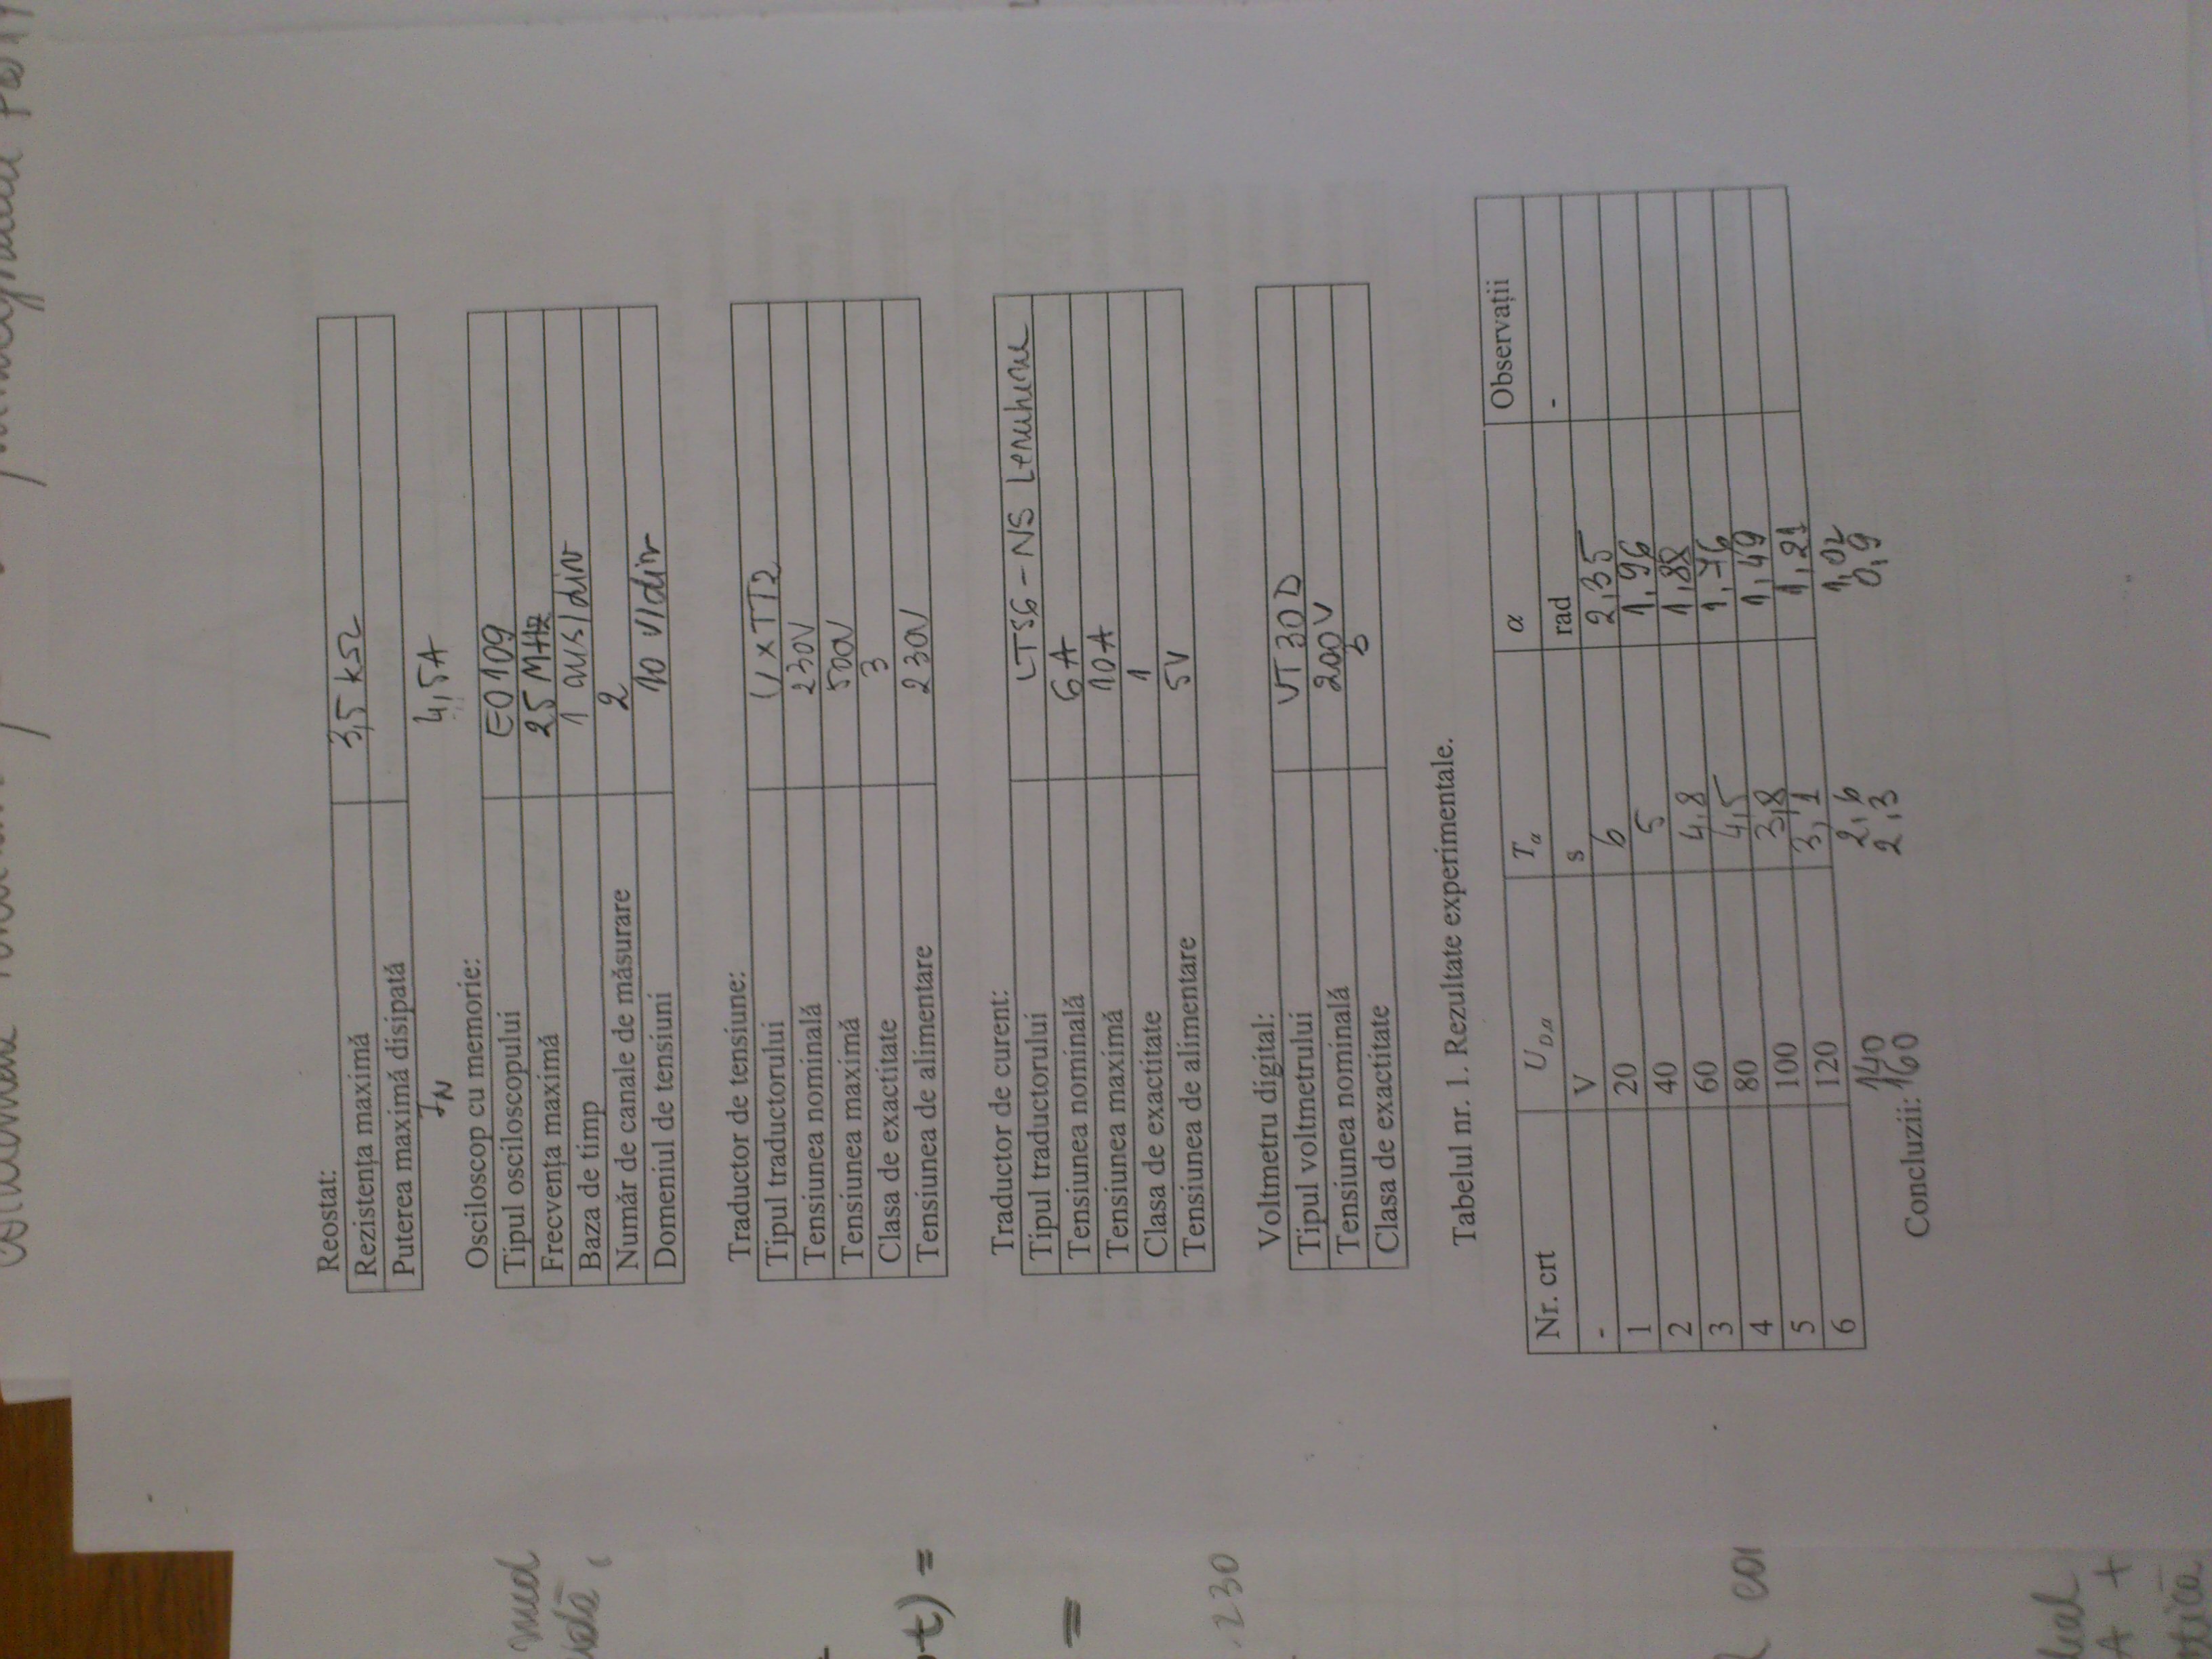 Reostat:
Rezistența maximă 3,5 kΩ
Puterea maximă disipată
IN 4,5A
Osciloscop cu memorie:
Tipul osciloscopului EO109
Frecvența maximă 25 MHz
Baza de timp 1 ms/div
Număr de canale de măsurare 2
Domeniul de tensiuni 10 V/div
Traductor de tensiune:
Tipul traductorului UxTT2
Tensiunea nominală 230V
Tensiunea maximă 500V
Clasa de exactitate 3
Tensiunea de alimentare 230V
Traductor de curent:
Tipul traductorului LTS6-NS
Tensiunea nominală 6A
Tensiunea maximă 10A
Clasa de exactitate 1
Tensiunea de alimentare 5V
Voltmetru digital:
Tipul voltmetrului VT30D
Tensiunea nominală 200V
Clasa de exactitate 6
Tabelul nr. 1. Rezultate experimentale.
Nr. crt UD,α Tα α Observații
- V s rad -
1 20 6 2,35
2 40 5 1,96
3 60 4,8 1,88
4 80 4,5 1,76
5 100 3,8 1,49
6 120 3,1 1,21
140 2,6 1,02
160 2,3 0,9
Concluzii:
t) =
=
230